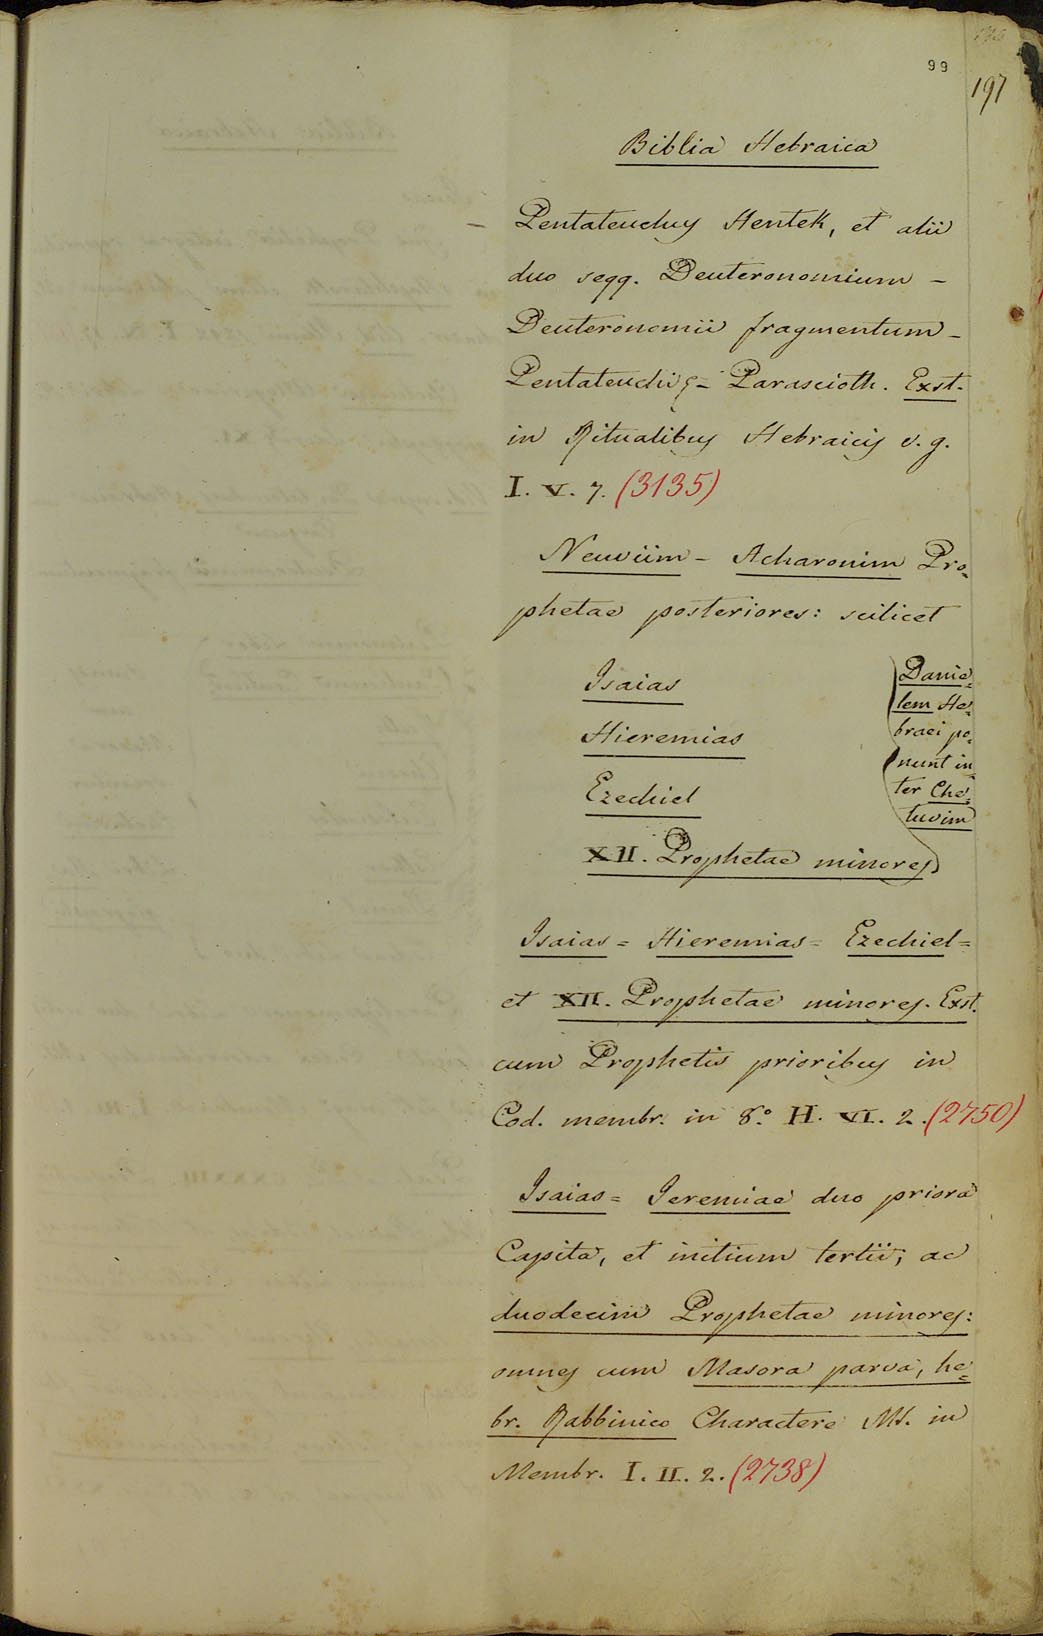 99
197
Biblia Hebraica
– Pentateuchus Hentek, et alii
duo seqq. Deuteronomium –
Deuteronomii fragmentum –
Pentateuchi – Parascioth. Exst.
in Ritualibus Hebraicis v. g.
I. V. 7. (3135)
Nevviim – Acharonim Pro=
phetae posteriores: scilicet
Isaias
Hieremias
Ezechiel
XII. Prophetae minores
Danie=
lem He=
braei po=
nunt in=
ter Che=
tuvim
Isaias = Hieremias = Ezechiel =
et XII. Prophetae minores. Exst.
cum Prophetis prioribus in
Cod. membr. in 8.° H. VI. 2. (2750)
Isaias = Jeremiae duo priora
Capita, et initium tertii; ac
duodecim Prophetae minores:
omnes cum Masora parva, he=
br. Rabbinico Charactere Ms. in
Membr. I. II. 2. (2738)